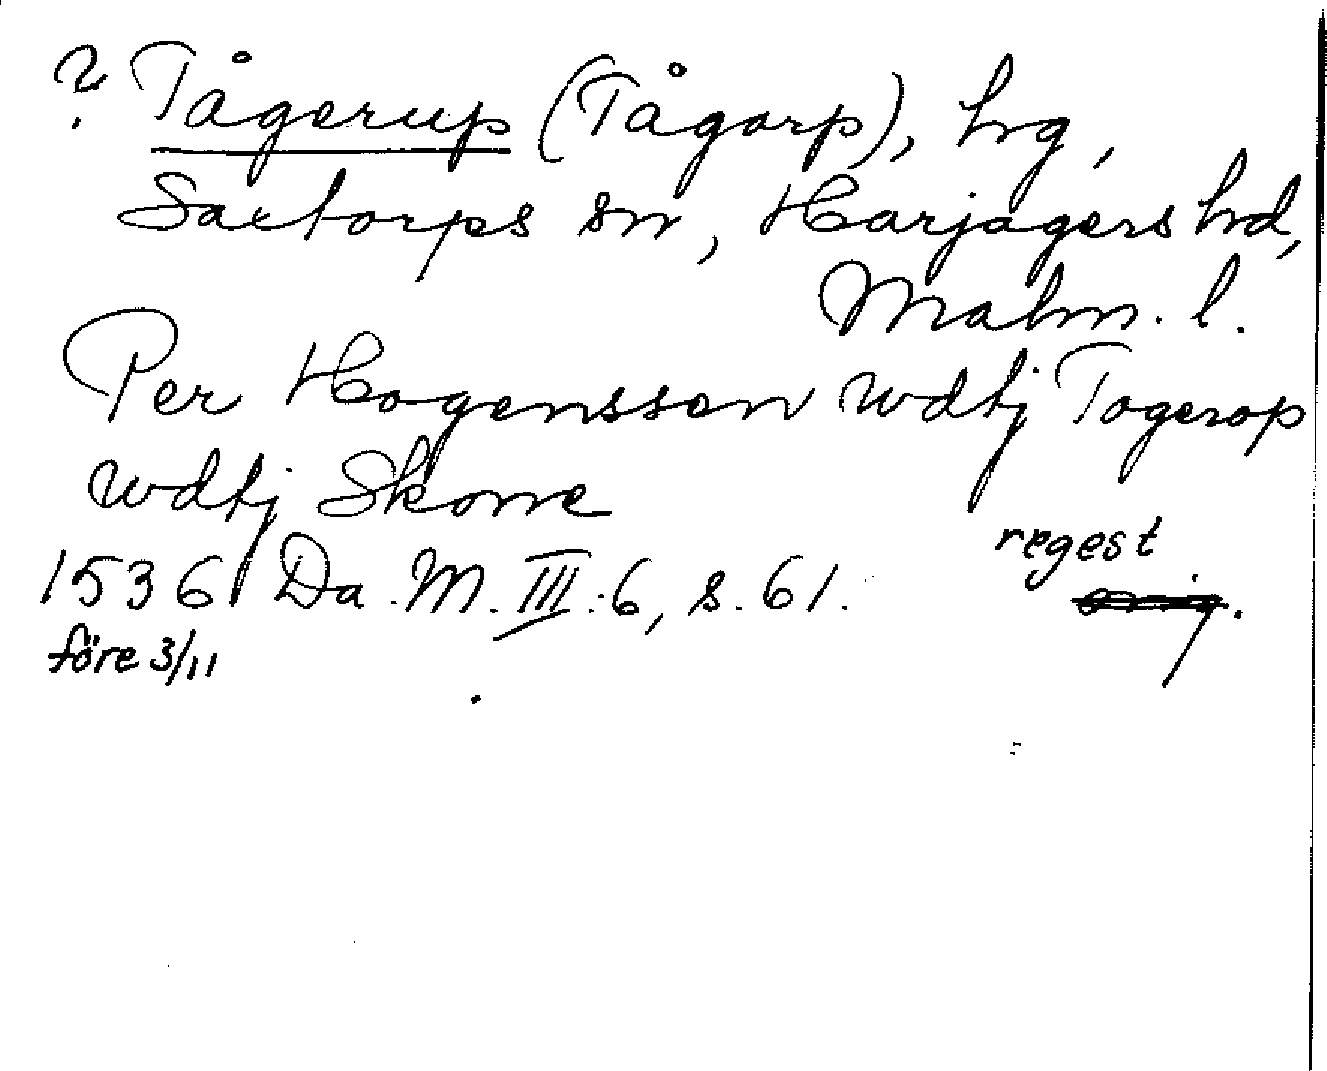 ? Tågerup (Tågarp), hg,
Saxtorps sn, Harjagers hd,
Malm. l.
Per Hogenssen wdtj Togerop
wdtj Skonne
1536 Da. M. III:6, s. 61. regest
före 3/11 orig.